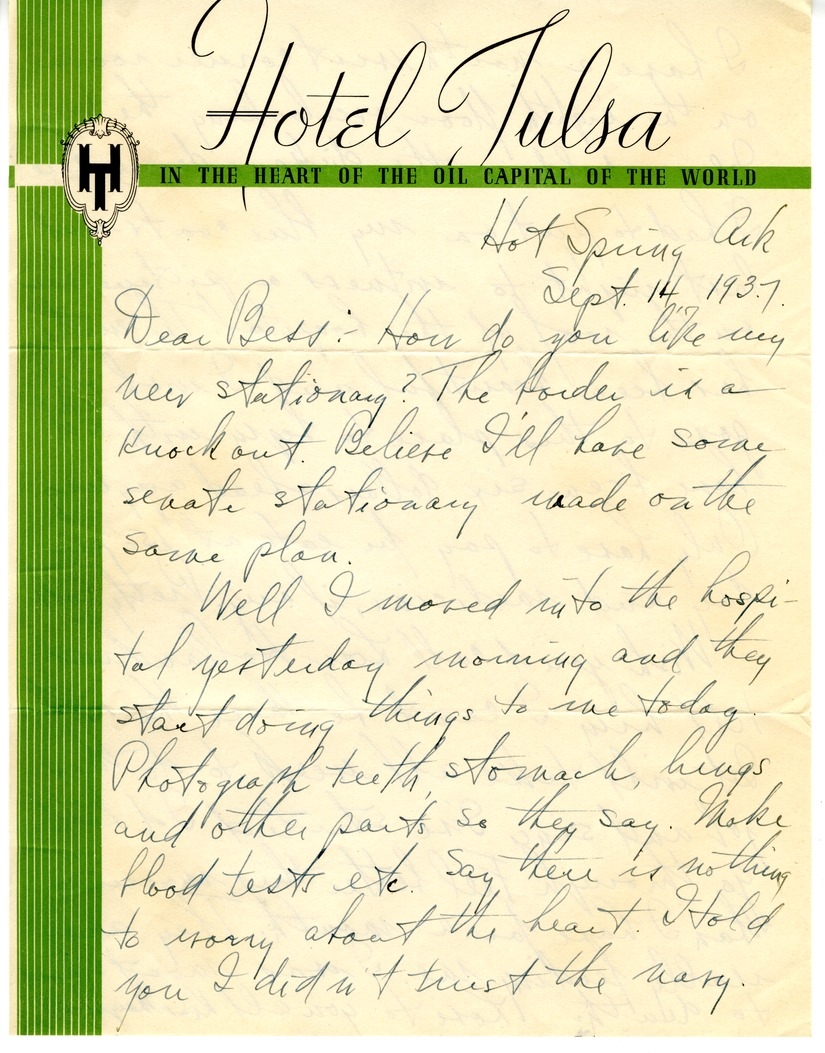 Hotel Tulsa
HT
IN THE HEART OF THE OIL CAPITAL OF THE WORLD
Hot Spring Ark
Sept. 14 1937.
Dear Bess:- How do you like my
new stationary? The border is a
knock out. Believe I'll have some
senate stationary made on the
same plan.
Well I moved into the hospi-
tal yesterday morning and they
start doing things to me today.
Photograph teeth, stomach, lungs
and other parts so they say. Make
blood tests etc. Say there is nothing
to worry about the heart. I told
you I didn't trust the navy.